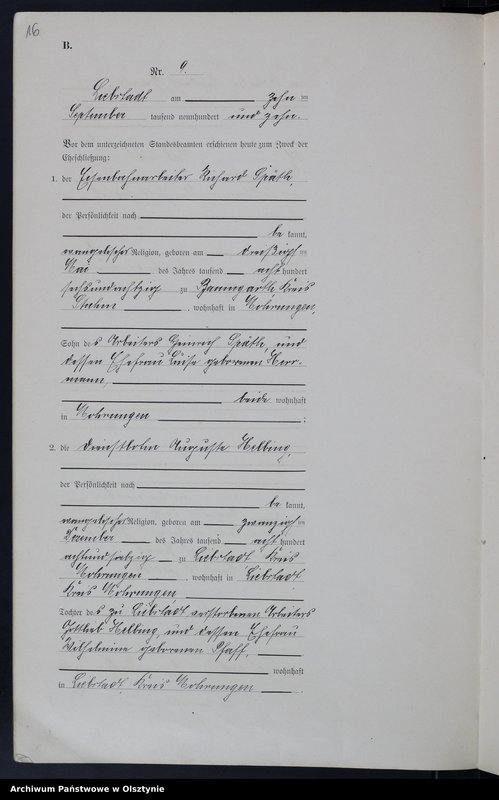 16
B.
Nr. 9.
Liebstadt am zehn ten
September tausend neunhundert und zehn.
Vor dem unterzeichneten Standesbeamten erschienen heute zum Zweck der
Eheschließung:
1. der Eisenbahnarbeiter Richard Späth,
der Persönlichkeit nach
be kannt,
evangelischer Religion, geboren am dreißigsten
Mai des Jahres tausend acht hundert
sechsundachtzig zu Baumgarth Kreis
Stuhm, wohnhaft in Mohrungen,
Sohn des Arbeiters Heinrich Späth, und
dessen Ehefrau Luise geborenen Herr-
mann,
beide wohnhaft
in Mohrungen ;
2. die Dienstbotin Auguste Helbing,
der Persönlichkeit nach
be kannt,
evangelischer Religion, geboren am zwanzigsten
Dezember des Jahres tausend acht hundert
achtund zu Liebstadt Kreis
Mohrungen, wohnhaft in Liebstadt,
Kreis Mohrungen
Tochter des zu Liebstadt verstorbenen Arbeiters
Gottlieb Helbing, und dessen Ehefrau
Wilhelmine geborenen Pfaff,
wohnhaft
in Liebstadt, Kreis Mohrungen .
Archiwum Państwowe w Olsztynie